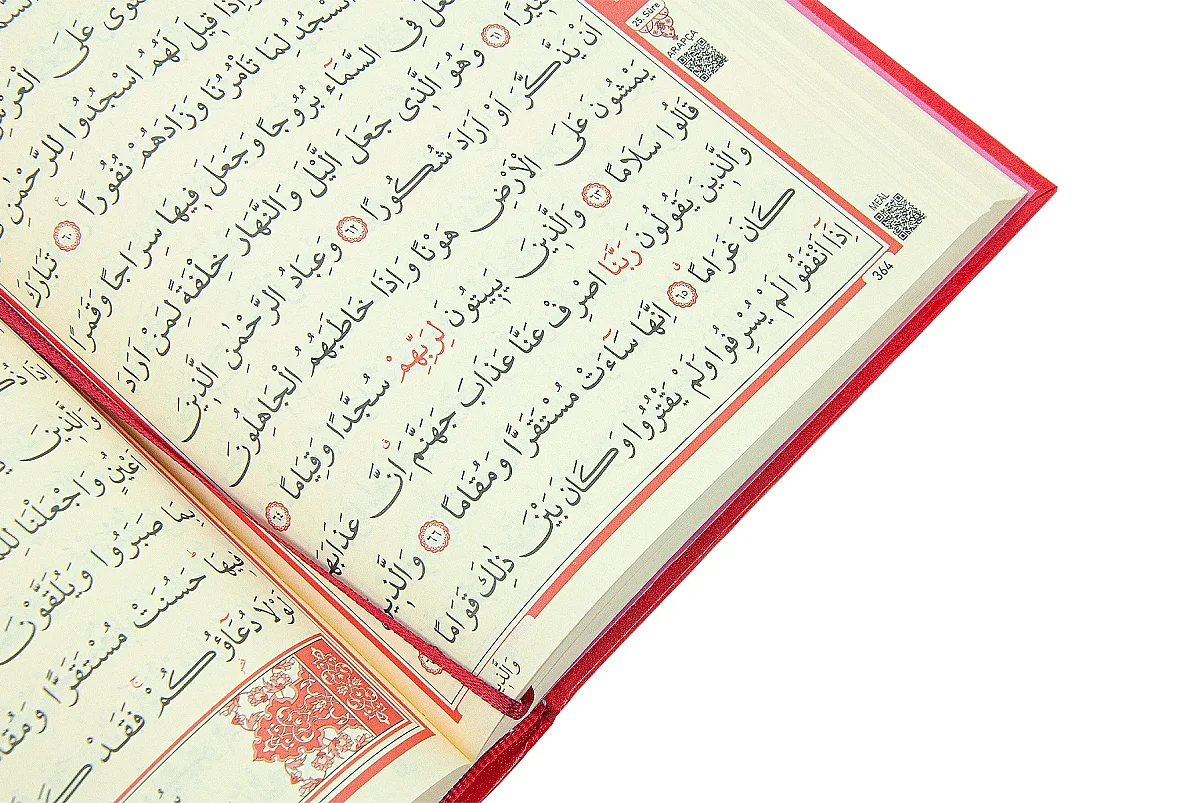 25. Sûre
ARAPÇA
عَلَى الْعَرْشِ
قِيلَ لَهُمُ اسْجُدُوا لِلرَّحْمٰنِ
لِمَا تَأْمُرُنَا وَزَادَهُمْ نُفُورًا ٦٠ تَبَارَكَ
فِي السَّمَٓاءِ بُرُوجًا وَجَعَلَ فِيهَا سِرَاجًا وَقَمَرًا
٦١ وَهُوَ الَّذِى جَعَلَ الَّيْلَ وَالنَّهَارَ خِلْفَةً لِمَنْ اَرَادَ
اَنْ يَذَّكَّرَ اَوْ اَرَادَ شُكُورًا ٦٢ وَعِبَادُ الرَّحْمٰنِ الَّذِينَ
يَمْشُونَ عَلَى الْاَرْضِ هَوْنًا وَاِذَا خَاطَبَهُمُ الْجَاهِلُونَ
قَالُوا سَلَامًا ٦٣ وَالَّذِينَ يَبِيتُونَ لِرَبِّهِمْ سُجَّدًا وَقِيَامًا ٦٤
وَالَّذِينَ يَقُولُونَ رَبَّنَا اصْرِفْ عَنَّا عَذَابَ جَهَنَّمَ اِنَّ عَذَابَهَا
كَانَ غَرَامًا ٦٥ اِنَّهَا سَٓاءَتْ مُسْتَقَرًّا وَمُقَامًا ٦٦
اِذَٓا اَنْفَقُوا لَمْ يُسْرِفُوا وَلَمْ يَقْتُرُوا وَكَانَ بَيْنَ ذٰلِكَ قَوَامًا
MEÂL
364
وَالَّذِينَ
اَعْيُنٍ وَاجْعَلْنَا
بِمَا صَبَرُوا وَيُلَقَّوْنَ
فِيهَا حَسُنَتْ مُسْتَقَرًّا
لَوْلَا دُعَٓاؤُكُمْ فَقَدْ